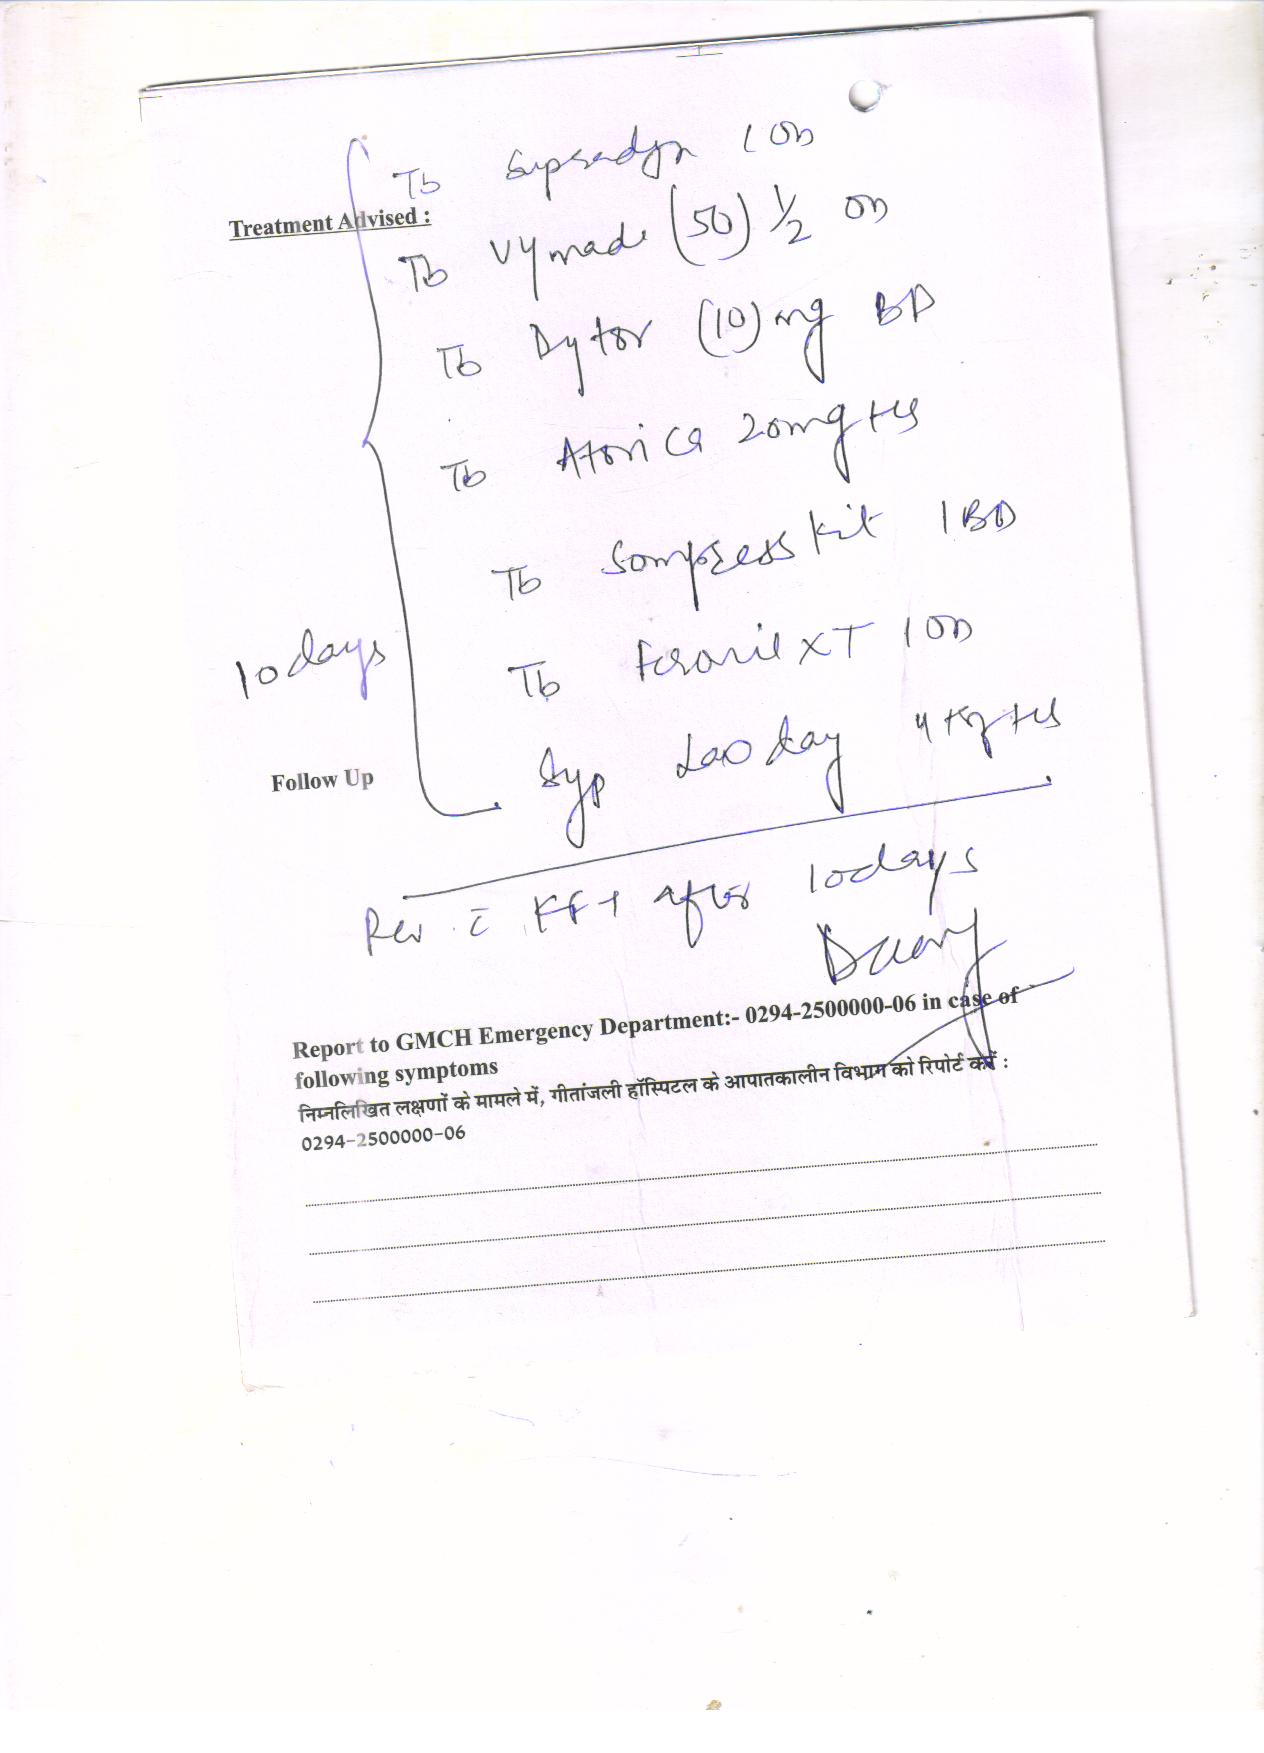 Tb Supradyn 1 OD
Treatment Advised :
Tb Vymade (50) 1/2 OD
Tb Dytor (10) mg BD
Tb Atorica 20mg HS
Tb Sompress Kit 1 BD
10 days
Tb XT 1 OD
Syp day 4 HS
Follow Up
Rev. c̄ KFT after 10 days
Report to GMCH Emergency Department:- 0294-2500000-06 in case of
following symptoms
निम्नलिखित लक्षणों के मामले में, गीतांजली हॉस्पिटल के आपातकालीन विभाग को रिपोर्ट करें :
0294-2500000-06